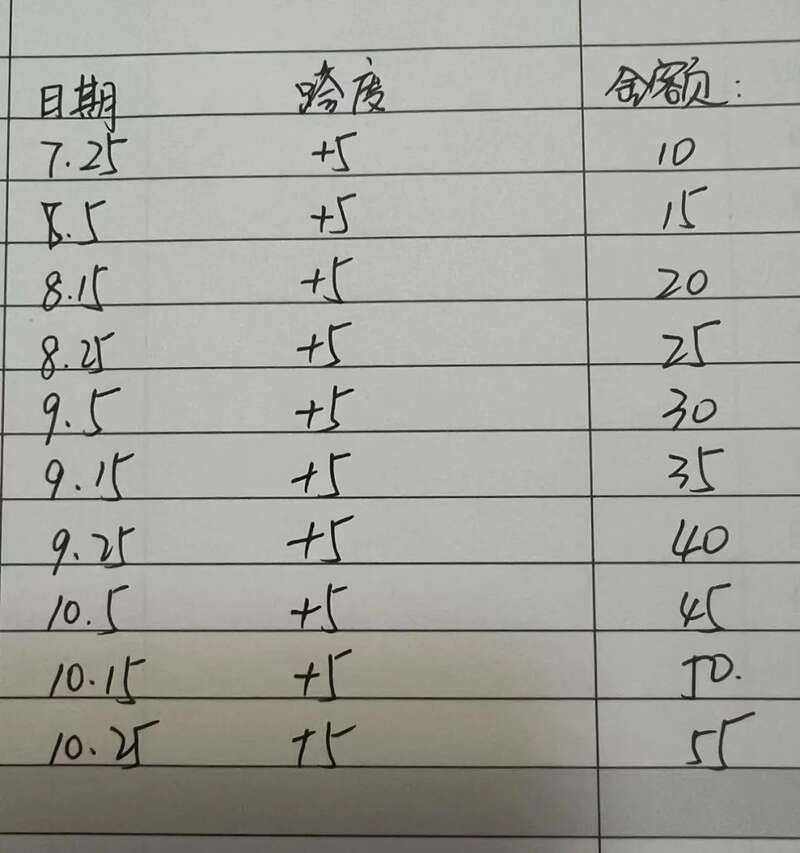 日期 跨度 金额:
7.25 +5 10
8.5 +5 15
8.15 +5 20
8.25 +5 25
9.5 +5 30
9.15 +5 35
9.25 +5 40
10.5 +5 45
10.15 +5 50.
10.25 +5 55